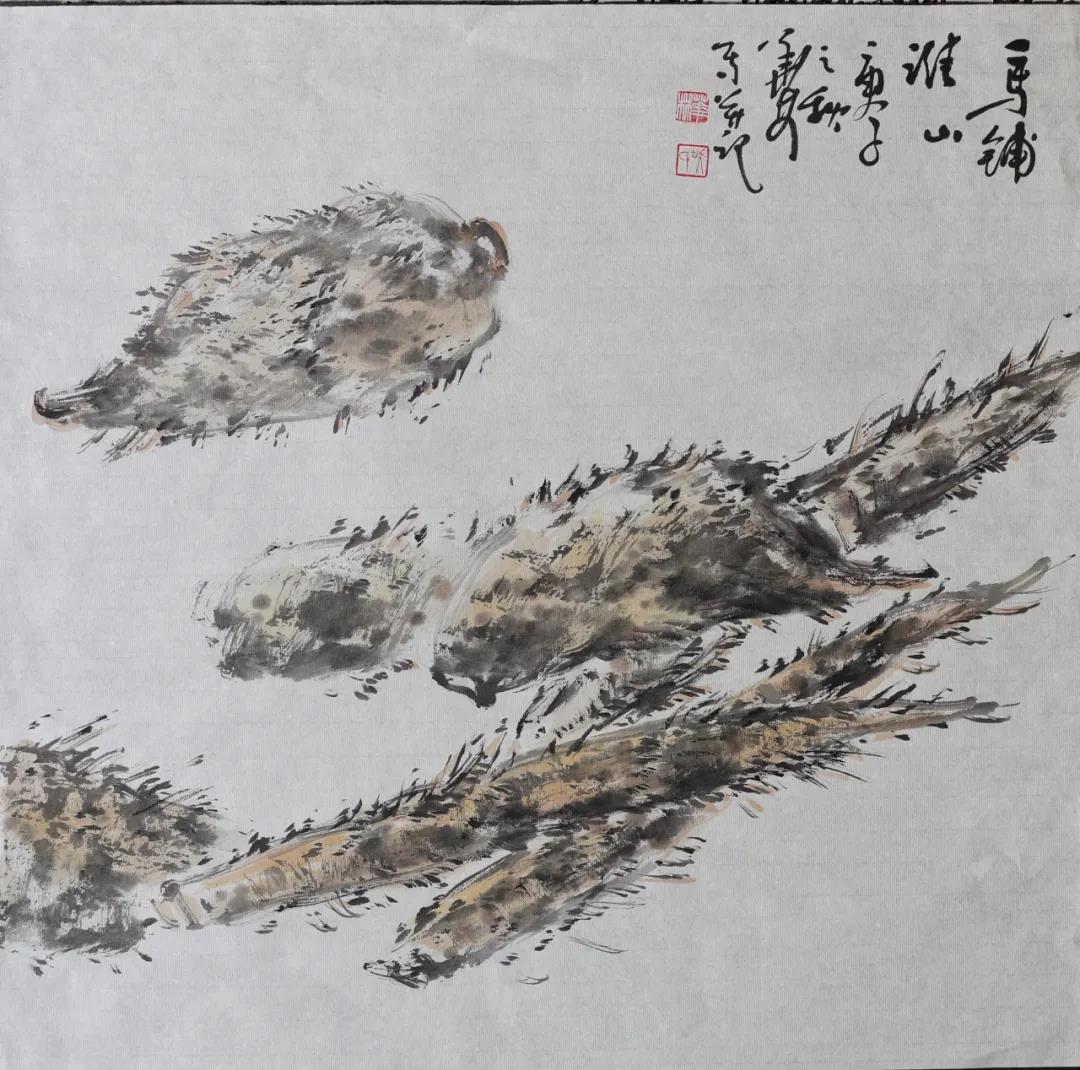 马铺
淮山
庚子
之秋
写并记